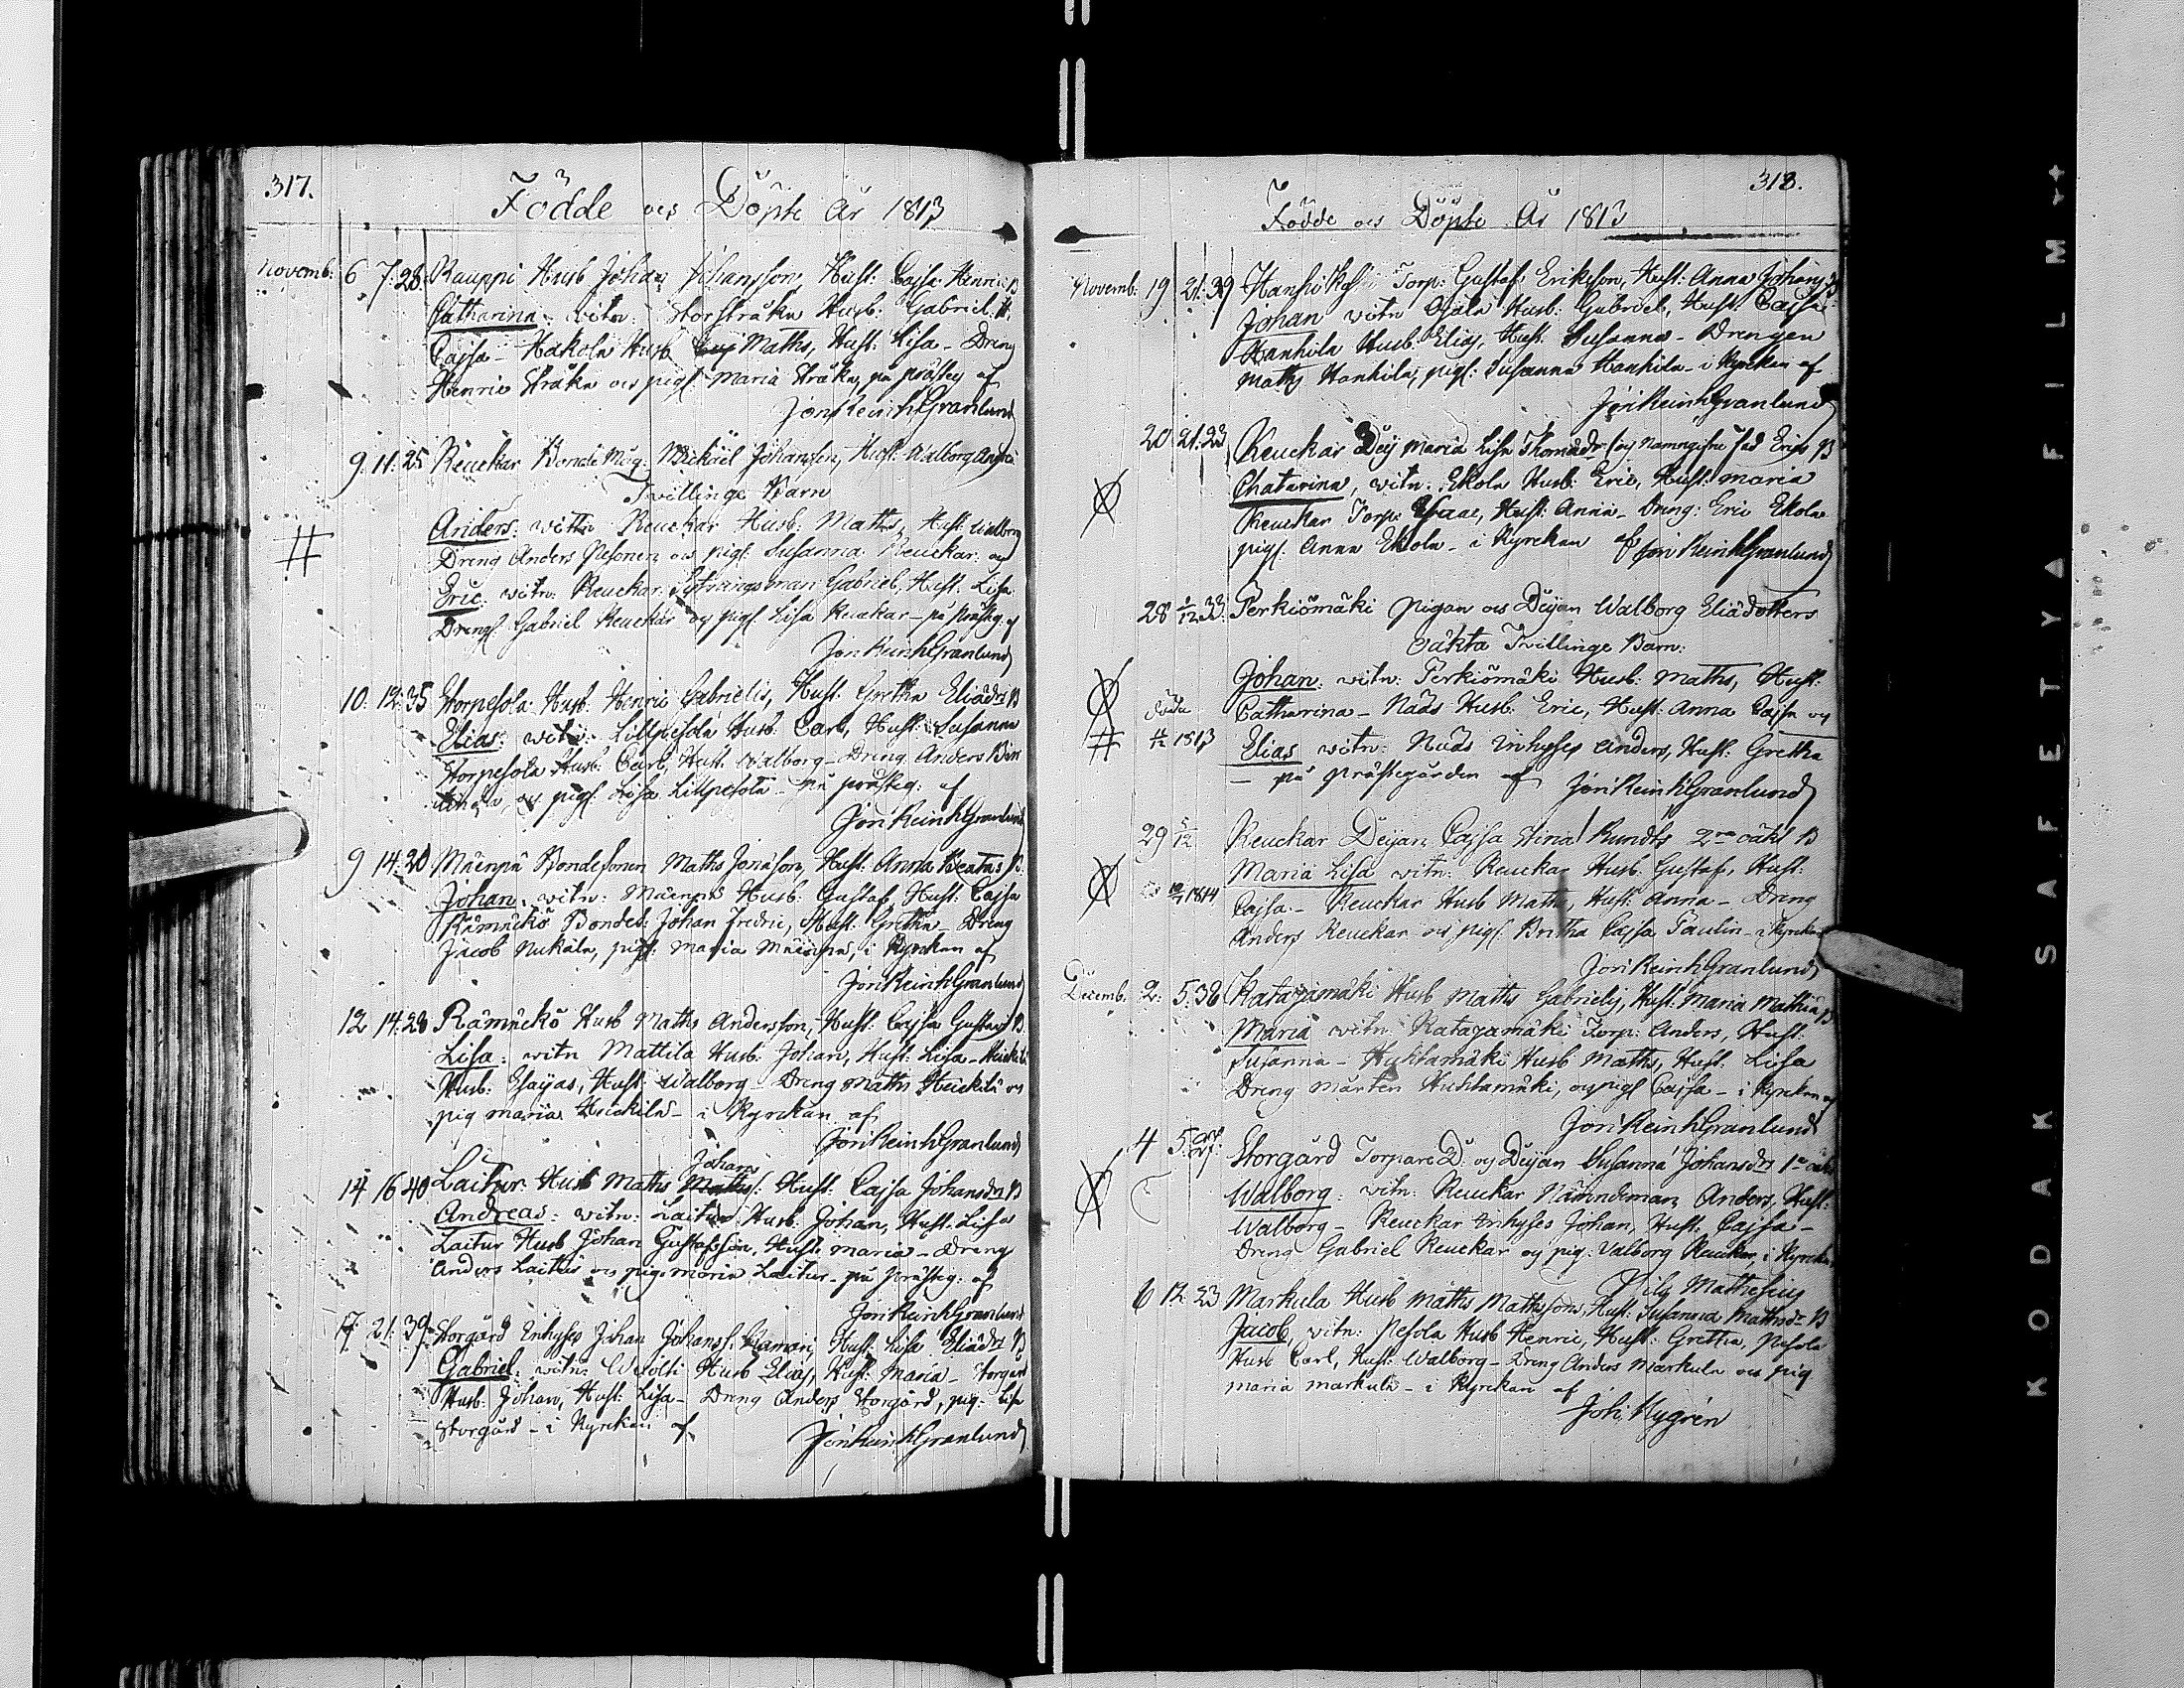 317.
Födde och Döpte År 1813
Novemb: 6 7: 28 Rauppi Husb Johan Johansson, Hust: Cajsa Henrics B
Catharina: witn: Storstråka Husb: Gabriel, H.
Cajsa - Hakola Husb Maths, Hust: Lisa - Dreng
Henric Stråka och pigs: Maria Stråka, på prästeg af
Jon Reinh Granlund
9. 11: 25 Reuckar Bonde Måg: Mickäel Johansson, Hust: Walborg Anders
Twillinge Barn
Anders: witn: Reuckar Husb: Maths, Hust Walborg
Dreng Anders Pesonen och pigs: Susanna Reuckar: og
Eric: witn: Reuckar Sytningsman Gabriel, Hust: Lisa
Drengs: Gabriel Reuckar og pigs: Lisa Reuckar - på prästeg: af
Jon Reinh Granlund
10: 12: 35 Storpesola Husb: Henric Gabrielss, Hust: Gretha Eliædr B
Elias: witn: Lillpesola Husb: Carl, Hust: Susanna
Storpesola Husb: Carl, Hust: Walborg - Dreng Anders
och pigs: Lisa Lillpesola - på prästeg: af
Jon Reinh Granlund
9 14: 20 Mäenpä Bondesonen Maths Jonæson, Hust: Anna Beatas B.
Johan: witn: Mäenpä Husb: Gustaf, Hust: Cajsa
Rämäckö Bondes: Johan Fredric, Hust: Gretha - Dreng
Jacob Nukala, pigs: Maria Mäenpä, i Kyrckan af
Jon Reinh Granlund
12 14: 28 Rämäckö Husb Maths Andersson, Hust: Cajsa Gustavs B.
Lisa: witn Mattila Husb: Johan, Hust: Lisa - Heickilä
Husb: Esaijas, Hust: Walborg - Dreng Maths Heickilä och
pig Maria Heickilä - i Kyrckan af
Jon Reinh Granlund
Johans
14 16 40 Laitur: Husb Maths Hust: Cajsa Johansdr B
Andreas: witn: Laitur Husb: Johan, Hust: Lisa
Laitur Husb: Johan Gustafsson, Hust: Maria - Dreng
Anders Laitur och pigs: Maria Laitur - på prästeg: af
Jon Reinh Granlund
17: 21: 39 Storgård Inhyses Johan Johanss: Hust: Lisa Eliædr B
Gabriel: witn: Husb Elias, Hust: Maria - Storgård
Husb: Johan, Hust: Lisa - Dreng Anders Storgård, pig: Lisa
Storgård - i Kyrckan af
Jon Reinh Granlund
318.
Födde och Döpte År 1813
Novemb: 19 21: 39 Torp: Gustaf Eriksson, Hust: Anna Johans B
Johan witn Ojala Husb: Gabriel, Hust: Cajsa
Hanhila Husb: Elias, Hust: Susanna - Drengen
Maths Hanhila, pigs: Susanna Hanhila - i Kyrckan af
Jon Reinh Granlund
20 21: 23 Reuckar Dej Maria Lisa Thomædr (og Namngifne Fad Erics B
Chatarina, witn: Ekola Husb: Eric, Hust: Maria
Reuckar Torp: Isaac, Hust: Anna - Dreng: Eric Ekola
pigs. Anna Ekola - i Kyrckan af Jon Reinh Granlund
28 1/12 33: Perkiömäki Pigan och Dejan Walborg Eliædotters
oäkta Twillinge Barn:
Johan: witn: Perkiömäki Husb: Maths, Hust:
Catharina - Näds Husb: Eric, Hust: Anna Cajsa og
1813 Elias witn: Näds Inhyses Anders, Hust: Gretha
- på Prästegården af Jon Reinh Granlund
29 5/12 Reuckar Dejan Cajsa Stina Runds 2ra oäkt B
1814 Maria Lisa witn: Reuckar Husb: Gustaf, Hust:
Cajsa - Reuckar Husb Maths, Hust: Anna - Dreng
Anders Reuckar och pigs: Britha Cajsa Paulin - i Kyrckan
Jon Reinh Granlund
Decemb: 2: 5: 38 Katajamäki Husb Maths Gabrielss, Hust: Maria Mathiæ B
Maria witn: Katajamäki Torp: Anders, Hust:
Susanna - Huhtamäki Husb Maths, Hust: Lisa
Dreng Mårten Huhtamäki, och pigs Cajsa - i Kyrckan af
Jon Reinh Granlund
4 5: Storgård Torpare D: og Dejan Susanna Johansdrs 1a oäkt
Walborg: witn: Reuckar Nämndeman Anders, Hust:
Walborg - Reuckar Inhyses Johan, Hust: Cajsa -
Dreng Gabriel Reuckar og pig: Valborg Reuckar, i Kyrckan
Mathesius
6 12: 23 Markula Husb Maths Mathssons, Hust: Susanna Mathsdr B
Jacob, witn: Pesola Husb Henric, Hust: Gretha, Pesola
Husb Carl, Hust: Walborg - Dreng Anders Markula och pig
Maria Markula - i Kyrckan af
Joh: Nygrén
KODAK SAFETY FILM